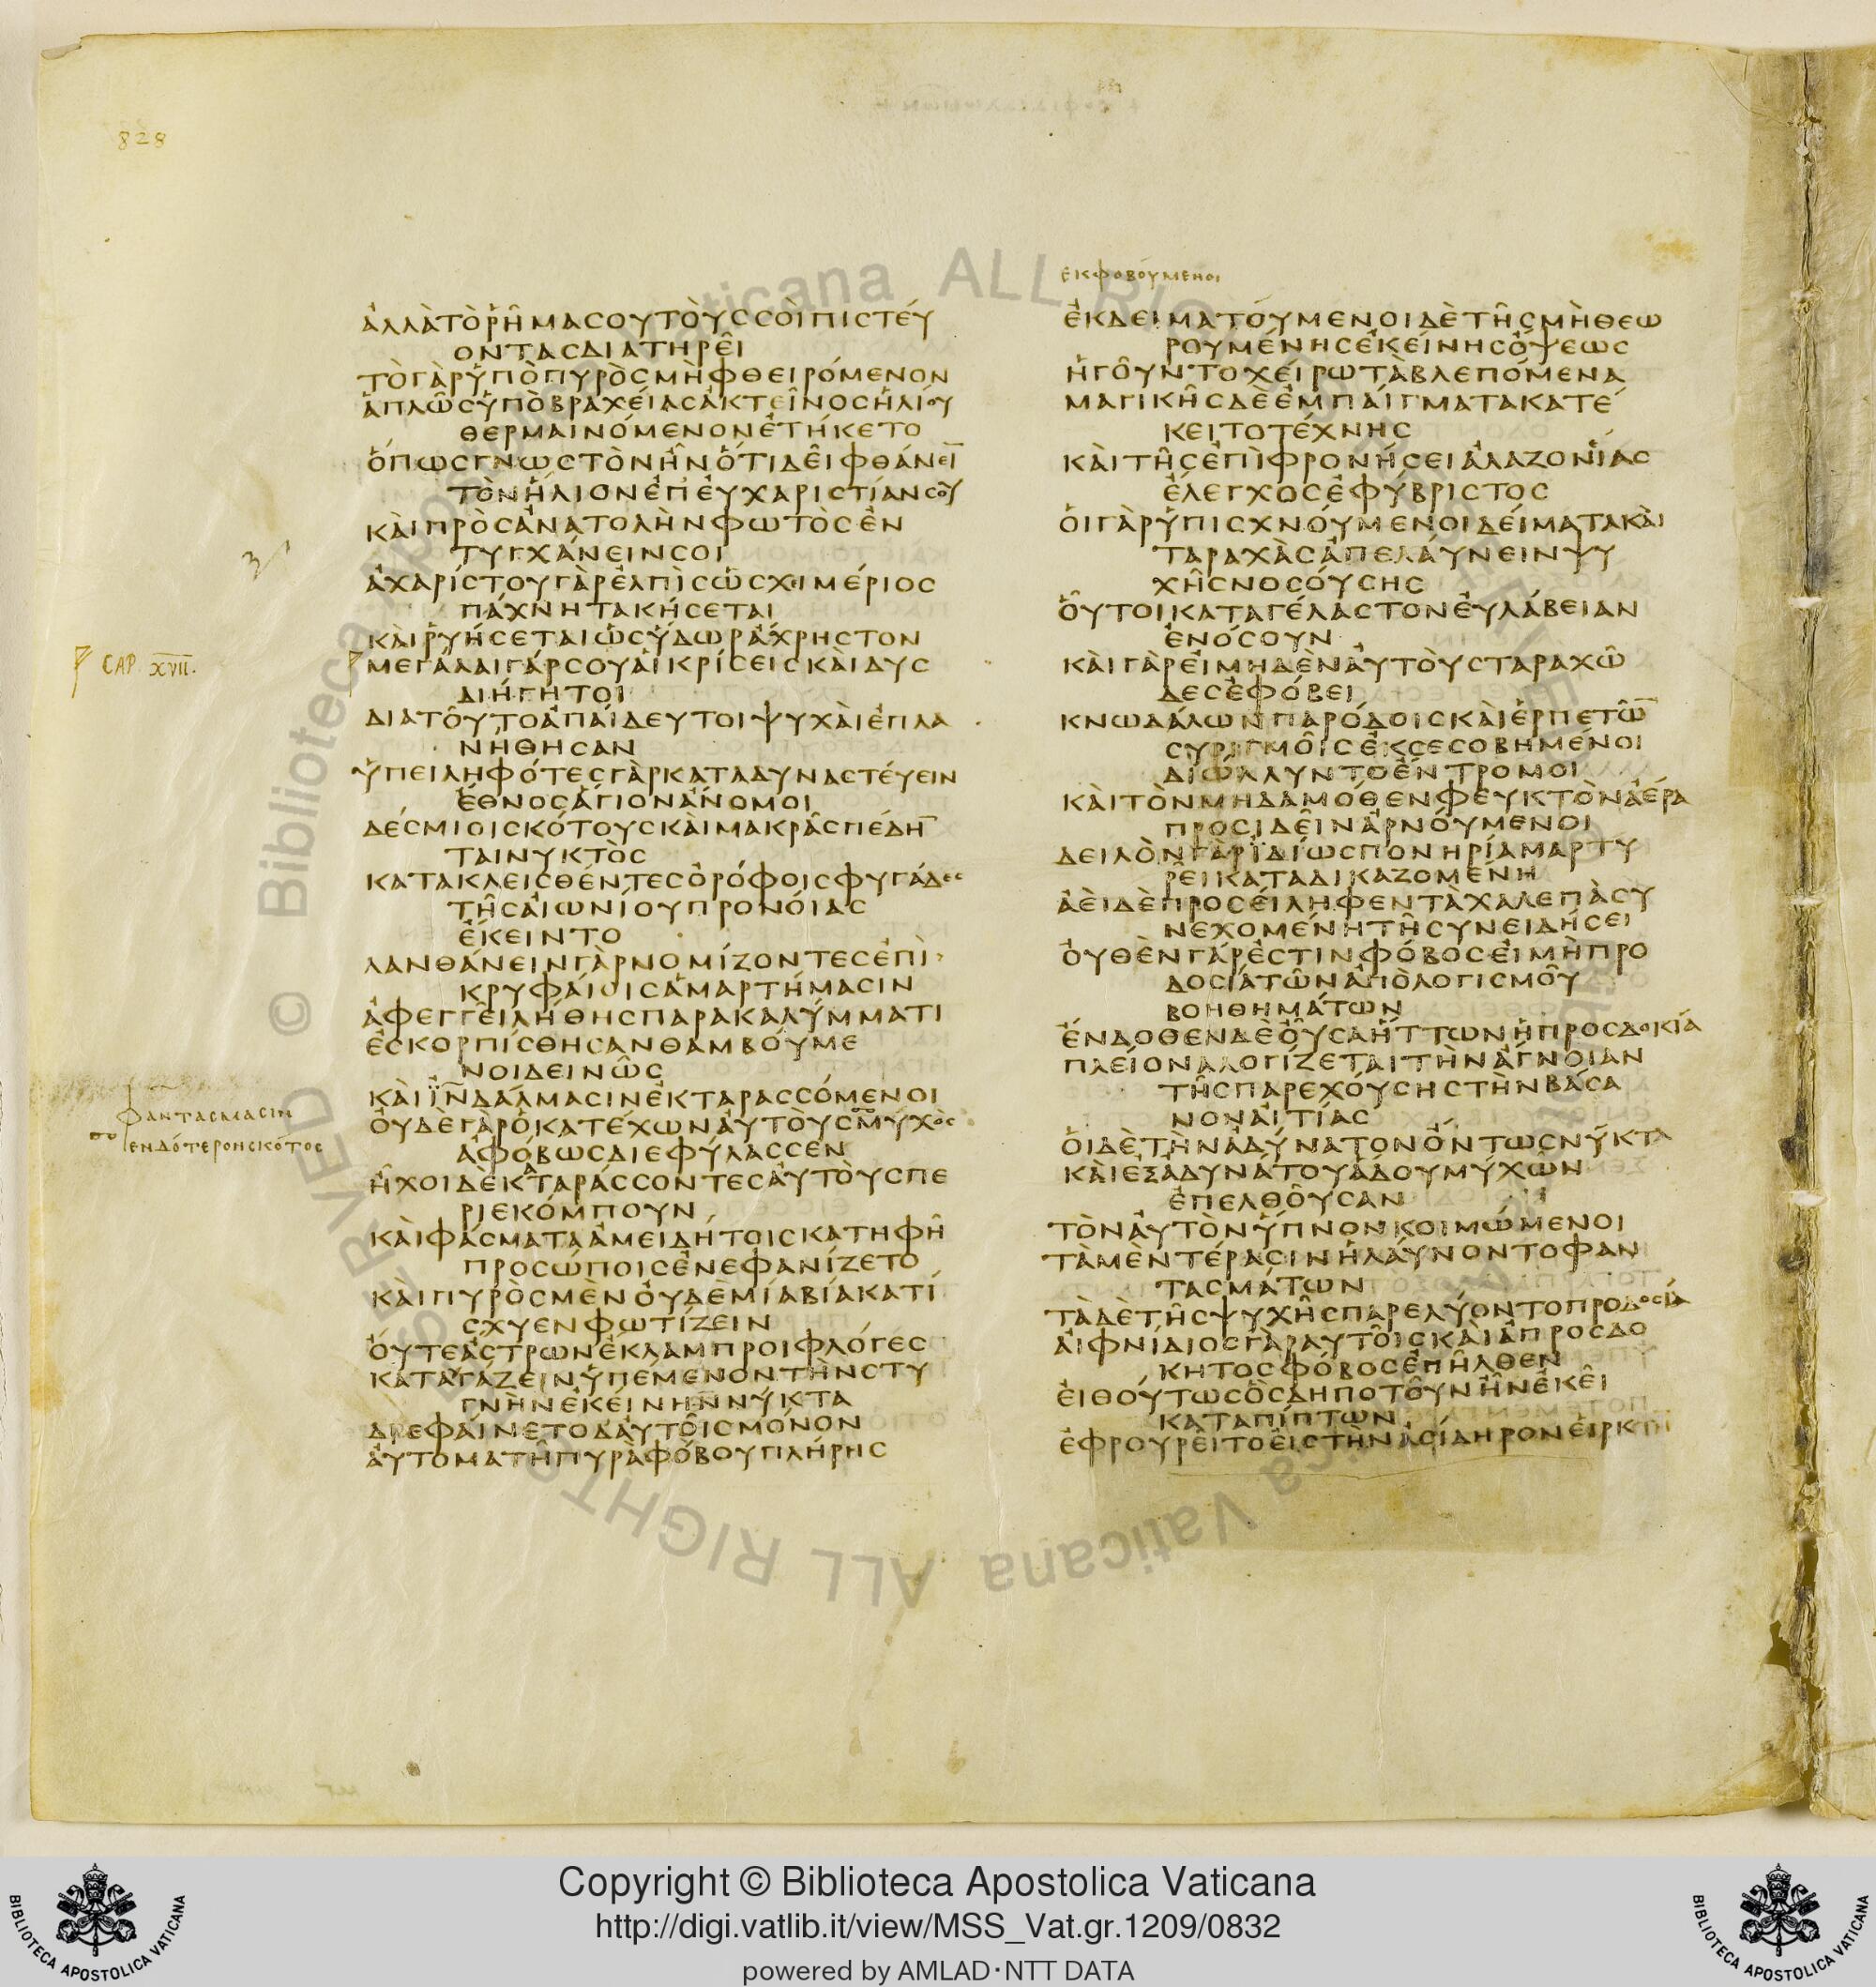 828
ἀλλὰτὸῥῆμασουτοὺςσοὶπιστεύ
οντασδιατηρεῖ
τὸγὰρὑπὸπυρὸςμὴφθειρόμενον
ἁπλῶςὑπὸβραχείασἀκτεῖνοςἡλίου
θερμαινόμενονἐτήκετο
ὅπωςγνωστὸνἦνὅτιδεῖφθάνει̅
τὸνἥλιονἐπ᾿εὐχαριστίανσου
καὶπρὸςἀνατολὴνφωτὸςἐν
τυγχάνεινσοι
ἀχαρίστουγὰρἐλπὶςὡςχιμέριος
πάχνητακήσεται
καὶῥυήσεταιὡςὕδωρἄχρηστον
CAP. XVII.
μεγάλαιγάρσουαἱκρίσειςκαὶδυς
διήγητοι
διατοῦτοἀπαίδευτοιψυχαὶἐπλα
νήθησαν
ὑπειληφότεςγὰρκαταδυναστεύειν
ἔθνοςἅγιονἄνομοι
δέσμιοισκότουςκαὶμακρᾶςπέδη̅
ταινυκτὸς
κατακλεισθέντεςὀρόφοιςφυγάδες
τῆςαἰωνίουπρονοίας
ἔκειντο
λανθάνεινγὰρνομίζοντεςἐπὶ
κρυφαίοιςἁμαρτήμασιν
ἀφεγγεῖλήθηςπαρακαλύμματι
ἐσκορπίσθησανθαμβούμε
νοιδεινῶς
καὶἰνδάλμασινἐκταρασσόμενοι
φαντασμασιν
οὐδὲγὰρὁκατέχωναὐτοὺςμυχὸς
ενδότεροησκότος
ἀφόβωςδιεφύλασσεν
ἦχοιδὲκταράσσοντεςαὐτοὺςπε
ριεκόμπουν
καὶφάσματαἀμειδήτοιςκατηφῆ
προσώποιςἐνεφανίζετο
καὶπυρὸςμὲνοὐδὲμίαβίακατί
σχυενφωτίζειν
οὔτεἄστρωνἔκλαμπροιφλόγες
καταγάζεινὑπέμενοντὴνστυ
γνὴνἐκείνηννύκτα
διεφαίνετοδ᾿αὐτοῖςμόνον
αὐτοματῆπυρὰφόβουπλήρης
εκφοβούμενοι
ἐκδειματούμενοιδὲτῆςμὴθεω
ρουμένηςἐκείνηςὄψεως
ἡγοῦντοχείρωτὰβλεπόμενα
μαγικῆςδὲἐμπαίγματακατέ
κειτοτέχνης
καὶτῆςἐπὶφρονήσειἀλαζονίας
ἔλεγχοςἐφύβριστος
οἱγὰρὑπισχνούμενοιδείματακαὶ
ταραχὰςἀπελαύνεινψυ
χῆςνοσούσης
οὗτοικαταγέλαστονεὐλάβειαν
ἐνόσουν
καὶγὰρεἰμηδὲναὐτοὺςταραχῶ
δεςἐφόβει
κνωδάλωνπαρόδοιςκαὶἑρπετῶ̅
συριγμοῖςἐκσεσοβημένοι
διώλλυντοἔντρομοι
καὶτὸνμηδαμόθενφευκτὸνἀέρα
προσιδεῖνἀρνούμενοι
δειλὸνγὰρἰδίωςπονηρίαμαρτυ
ρεῖκαταδικαζομένη
ἀεὶδὲπροσείληφεντὰχαλεπὰσυ
νεχομένητῆσυνειδήσει
οὐθὲνγάρἐστινφόβοςεἰμὴπρο
δοσίατῶνἀπὸλογισμοῦ
βοηθημάτων
ἔνδοθενδὲοὖσαἥττωνἡπροσδοκία
πλείοναλογίζεταιτὴνἄγνοιαν
τῆςπαρεχούσηςτὴνβάσα
νοναἰτίας
οἱδὲτὴνἀδύνατονὄντωςνύκτα
καὶἐξἀδυνάτουᾅδουμυχῶν
ἐπελθοῦσαν
τὸναὐτὸνὕπνονκοιμώμενοι
τὰμὲντέρασινἠλαύνοντοφαν
τασμάτων
τὰδὲτῆςψυχῆςπαρελύοντοπροδοσία
αἰφνίδιοςγὰραὐτοῖςκαὶἀπροσδό
κητοςφόβοςἐπῆλθεν
εἶθ᾿οὕτωςὃςδηποτοῦνἦνἐκεῖ
καταπίπτων
ἐφρουρεῖτοεἰςτὴνἀσίδηρονεἱρκτὴν
Copyright © Biblioteca Apostolica Vaticana
http://digi.vatlib.it/view/MSS_Vat.gr.1209/0832
powered by AMLAD·NTT DATA
BIBLIOTECA APOSTOLICA VATICANA
BIBLIOTECA APOSTOLICA VATICANA